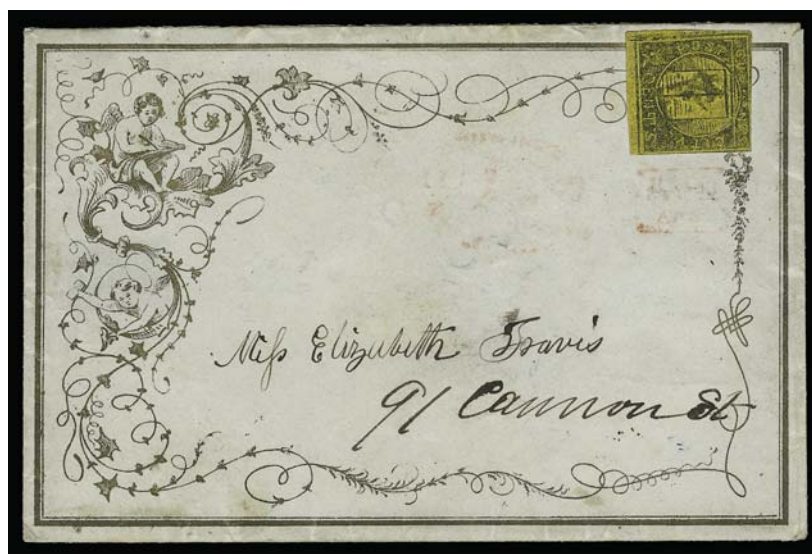 POST
Miſs Elizabeth Travis
91 Cannon St